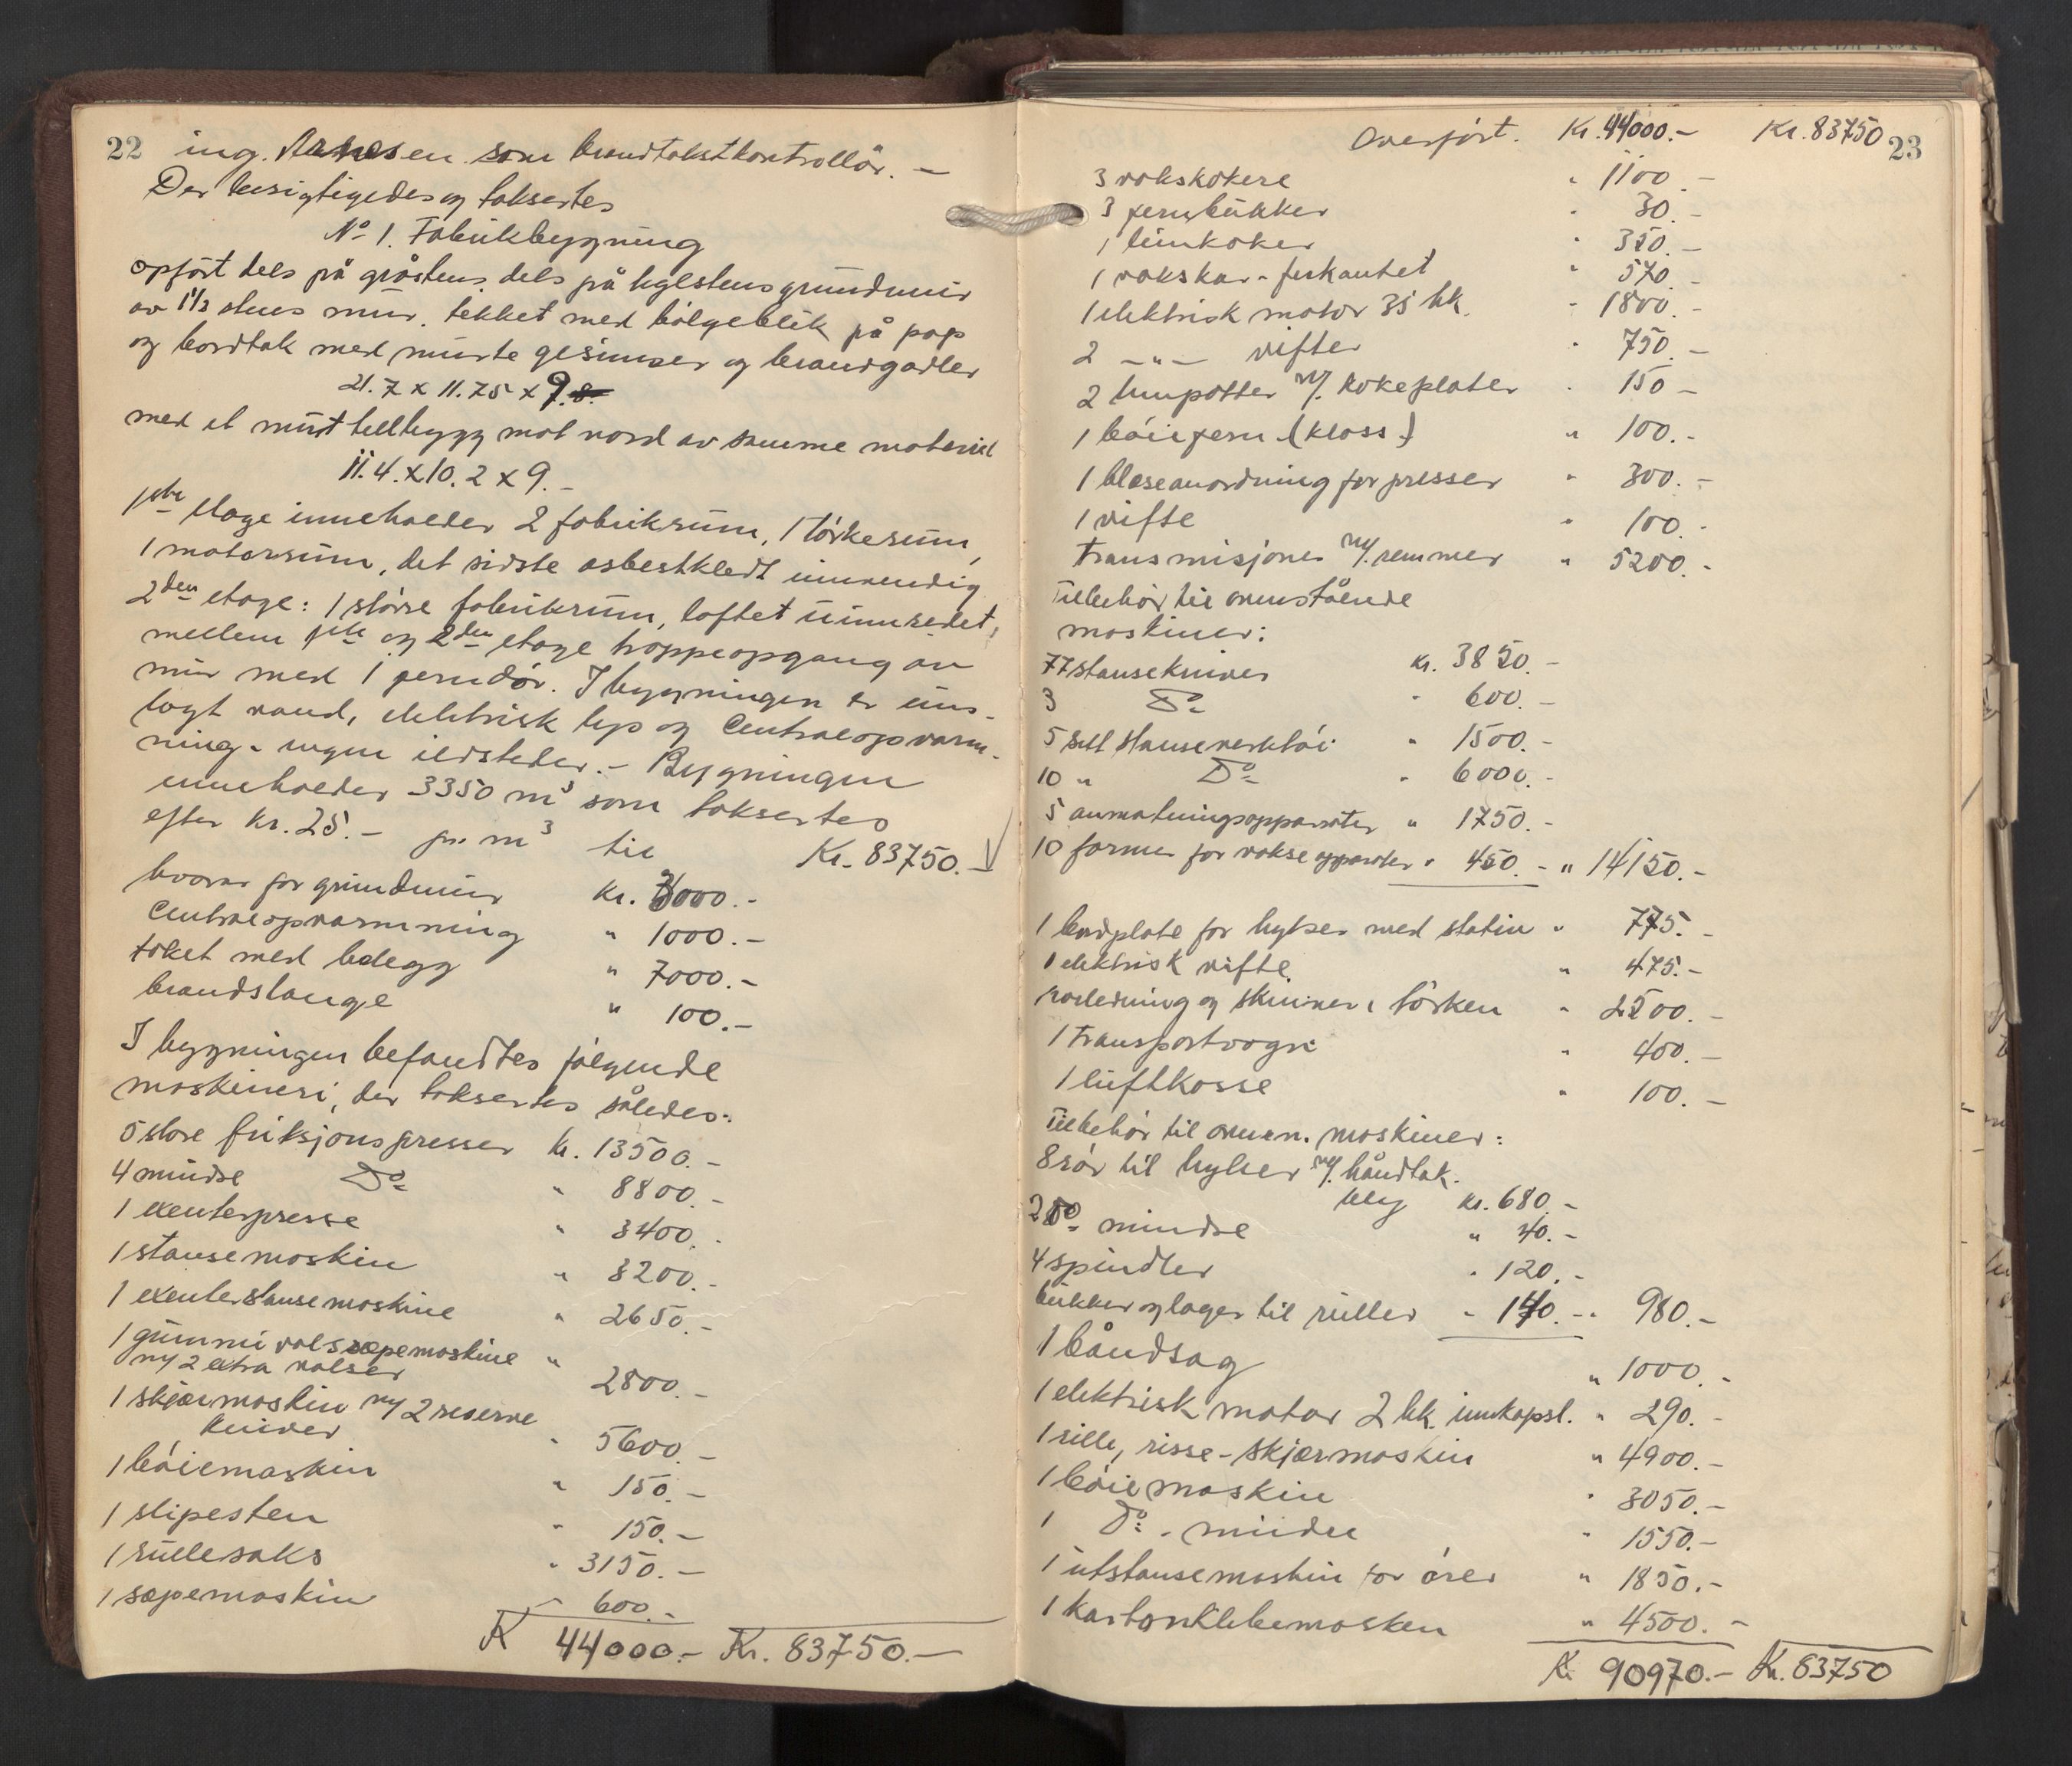 22 ing. Arnesen som brandtakstkontrollör. –
Der besigtigedes og taksertes
No 1. Fabrikbygning
opført dels på gråstens, dels på teglstensgrundmur
av 1 1/2 stens mur, tekket med bölgeblik på pap
og bordtak med murte gesimser og brandgavler
21.7 x 11.75 x 9.
med et murt tilbygg mot nord av samme material
11.4. x 10.2 x 9. –
1ste etage inneholder 2 fabrikrum, 1 törkerum,
1 motorrum, det sidste asbestkledt innvendig
2den etage: 1 större fabrikrum, loftet uinnredet,
mellem 1ste og 2den etage trappeopgang av
mur med 1 jerndör. I bygningen er inn-
lagt vand, elektrisk lys og Centralopvarm-
ning – ingen ildsteder. – Bygningen
inneholder 3350 m3 som taksertes
efter kr. 25.– pr. m3 til Kr. 83750.–
hvorav for grundmur kr. 3000.–
Centralopvarmning " 1000.–
taket med belegg " 7000.–
brandslange " 100.–
I bygningen befandtes fölgende
maskineri, der taksertes således:
5 store friksjonspresser kr. 13500.–
4 mindre Do " 8800.–
1 exenterpresse " 3400.–
1 stansemaskin " 3200.–
1 exenterstansemaskine " 2650.–
1 gummivalssæpemaskine "
m/ 2 extra valser 2800.–
1 skjærmaskin m/ 2 reserve
kniver " 5600.–
1 böiemaskin " 150.–
1 slipesten " 150.–
1 rullesaks " 3150.–
1 sæpemaskin " 600.–
K 44000.– Kr. 83750.–
Overfört. Kr. 44000.– Kr. 83750 23
3 vokskokere " 1100.–
3 jernbukker " 30.–
1 limkoker " 350.–
1 vokskar – firkantet " 570.–
1 elektrisk motor 35 hk. " 1800.–
2 – " – vifter " 750.–
2 limpotter m/. kokeplater " 150 –
1 böiejern (kloss) " 100.–
1 blæseanordning for presser " 300.–
1 vifte " 100.–
Transmisjoner m/. remmer " 5200.–
Tilbehör til ovenstående
maskiner:
77 stansekniver kr. 3850.–
3 Do " 600.–
5 sett stanseverktöi " 1500.–
10 " Do " 6000.–
5 anmatningsapparater " 1750.–
10 former for vokseapparater " 450.– " 14150.–
1 bordplate for hylser med stativ " 775.–
1 elektrisk vifte " 475.–
rörledning og skinner i törken " 2500.–
1 transportvogn " 400.–
1 luftkasse " 100.–
Tilbehör til ovenn. maskiner:
8 rör til hylser m/. håndtak.
kr. 680.–
2 Do mindre " 40.–
4 spindler " 120.–
bukker og lager til ruller " 140.– " 980.–
1 båndsag " 1000.–
1 elektrisk motor 2 hk. innkapsl. " 290.–
1 rille, risse – skjærmaskin " 4900.–
1 böiemaskin " 3050.–
1 Do – mindre " 1550.–
1 utstansemaskin for örer " 1850.–
1 kartonklebemaskin " 4500.–
K 90970.– Kr. 83750